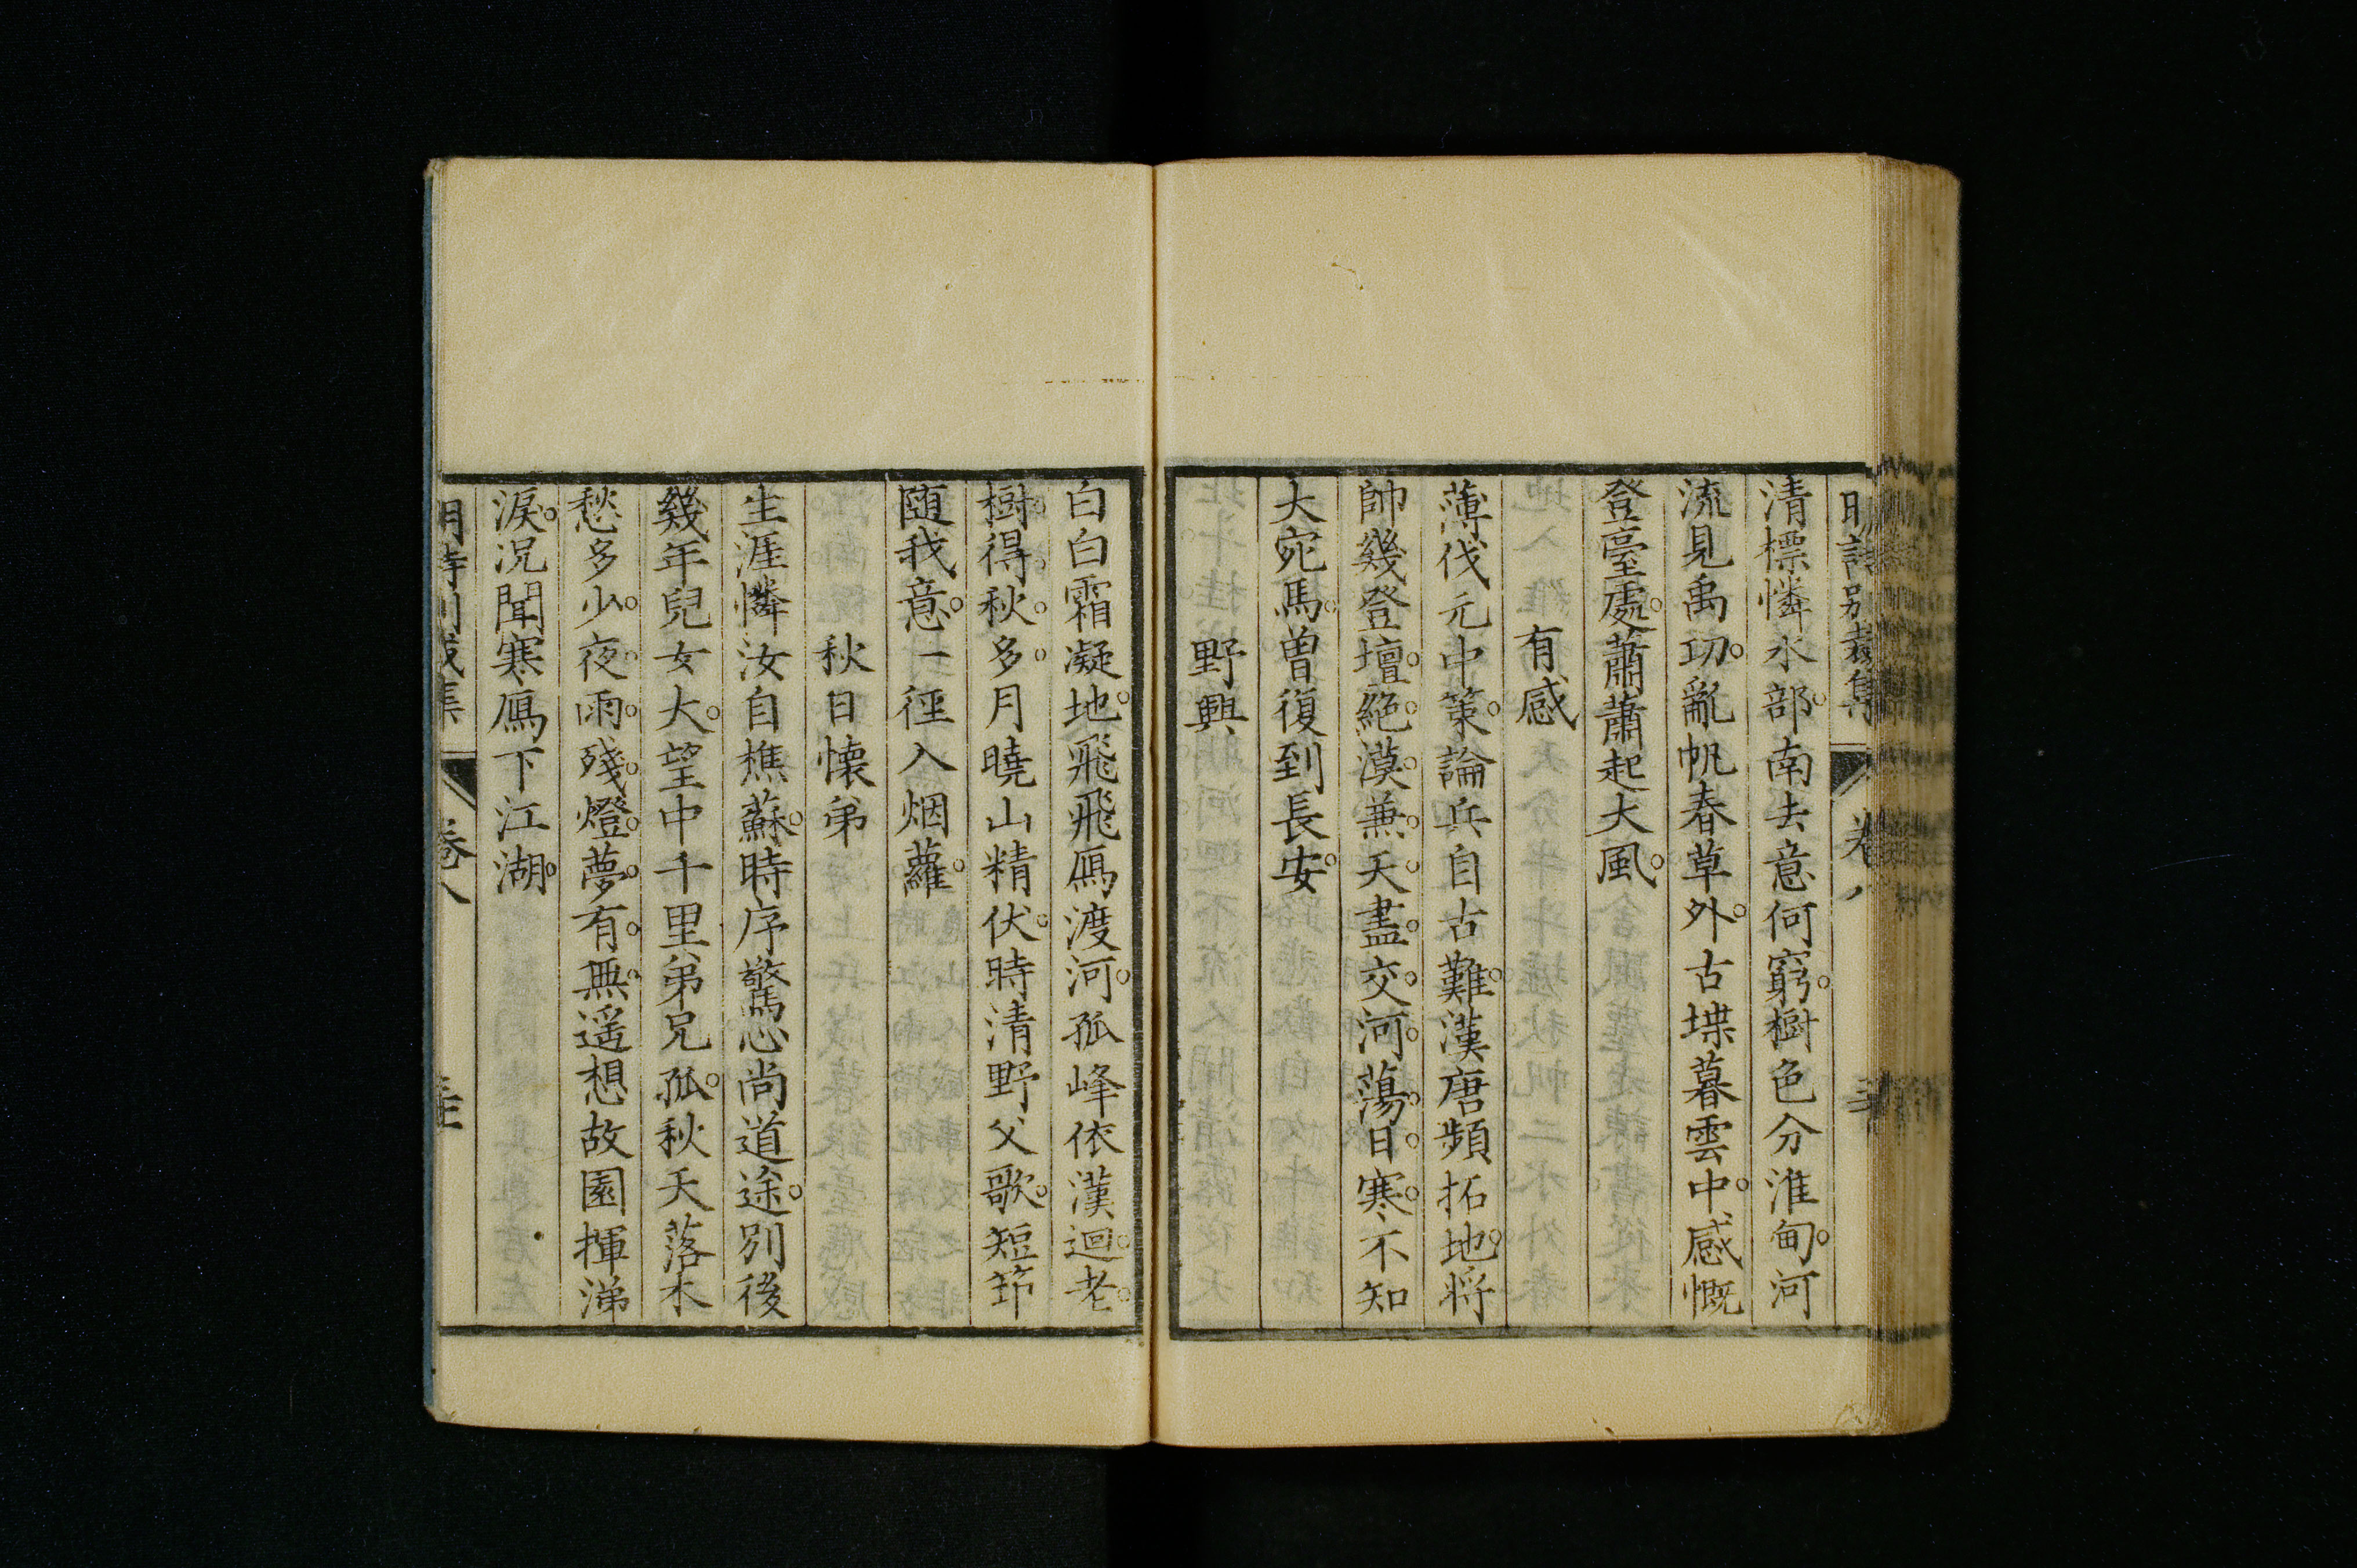 清標憐水部。南去意何窮。樹色分淮甸。河
流見禹功。亂帆春草外。古堞暮雲中。感慨
登臺處。蕭蕭起大風。
有感
薄伐元中策。論兵自古難。漢唐頻拓地。将
帥幾登壇。絕漠兼天盡。交河蕩日寒。不知
大宛馬。曽復到長安。
野興
白白霜凝地。飛飛鴈渡河。孤峰依漢迴。老
樹得秋多。月曉山精伏。時清野父歌。短筇
随我意。一徑入烟蘿。
秋日懐弟
生涯憐汝自樵蘇。時序驚心尚道途。别後
幾年兒女大。望中千里弟兄孤。秋天落木
愁多少。夜雨殘燈夢有無。遥想故園揮涕
淚。况聞寒鴈下江湖。
卷八